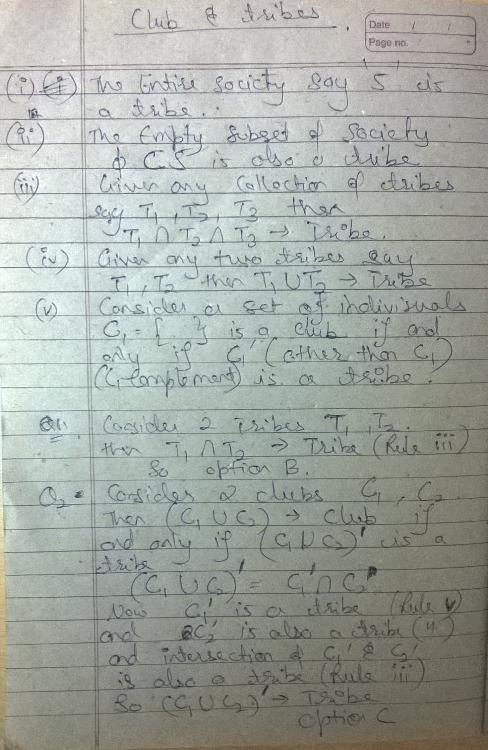 Club & tribes
Date / /
Page no.
(i) The Entire society say 'S' is
a tribe..
(ii) The Empty Subset of Society
φ ⊂ S is also a tribe
(iii) Given any Collection of tribes
say T₁, T₂, T₃ then
T₁ ∩ T₂ ∩ T₃ → Tribe.
(iv) Given any two tribes say
T₁, T₂ then T₁ ∪ T₂ → Tribe
(v) Consider a set of indivisuals
C₁ = { } is a club if and
only if C₁' (other than C₁)
(C₁ Complement) is a tribe.
Q1. Cosider 2 tribes T₁, T₂.
then T₁ ∩ T₂ → Tribe (Rule iii)
So option B.
Q2. Consider 2 clubs C₁, C₂
Then (C₁ ∪ C₂) → Club if
and only if (C₁ ∪ C₂)' is a
tribe
(C₁ ∪ C₂)' = C₁' ∩ C₂'
Now C₁' is a tribe (Rule v)
and C₂' is also a tribe (")
and intersection of C₁' & C₂'
is also a tribe (Rule iii)
So (C₁ ∪ C₂)' → Tribe
option C